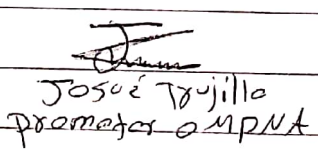 Josué Trujillo
promotor OMPNA